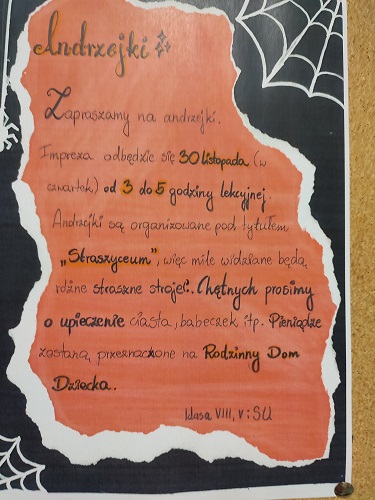 Andrzejki
Zapraszamy na andrzejki.
Impreza odbędzie się 30 listopada (w
czwartek) od 3 do 5 godziny lekcyjnej.
Andrzejki są organizowane pod tytułem
„Straszyceum", więc mile widziane będą
różne straszne stroje!. Chętnych prosimy
o upieczenie ciasta, babeczek itp. Pieniądze
zostaną przeznaczone na Rodzinny Dom
Dziecka.
klasa VIII, V i SU